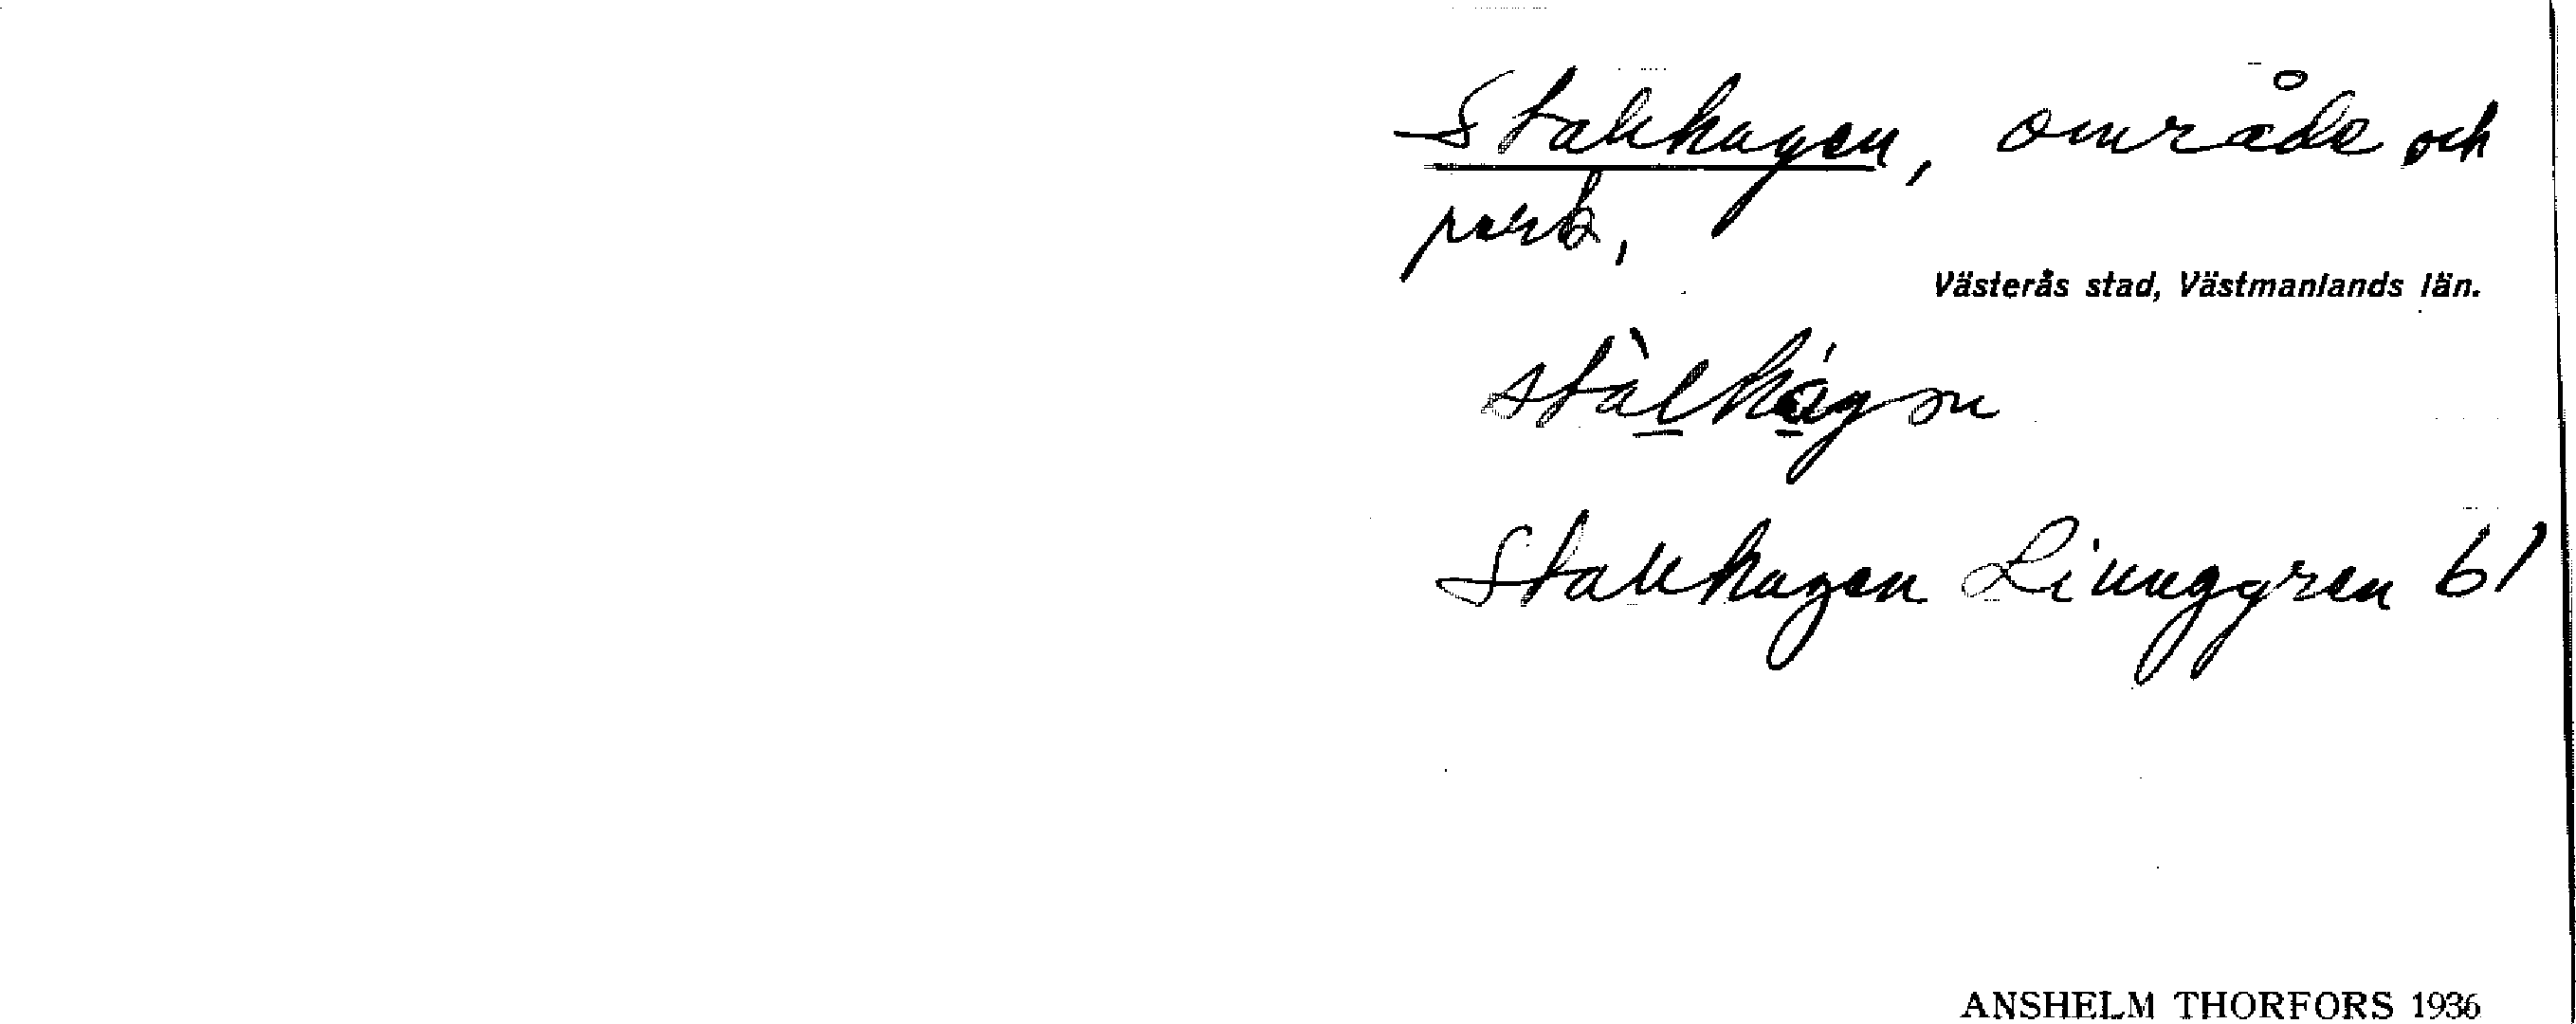 Stallhagen, område och
park,
Västerås stad, Västmanlands län.
stàlhágən
Stallhagen Linnggren 61
ANSHELM THORFORS 1936